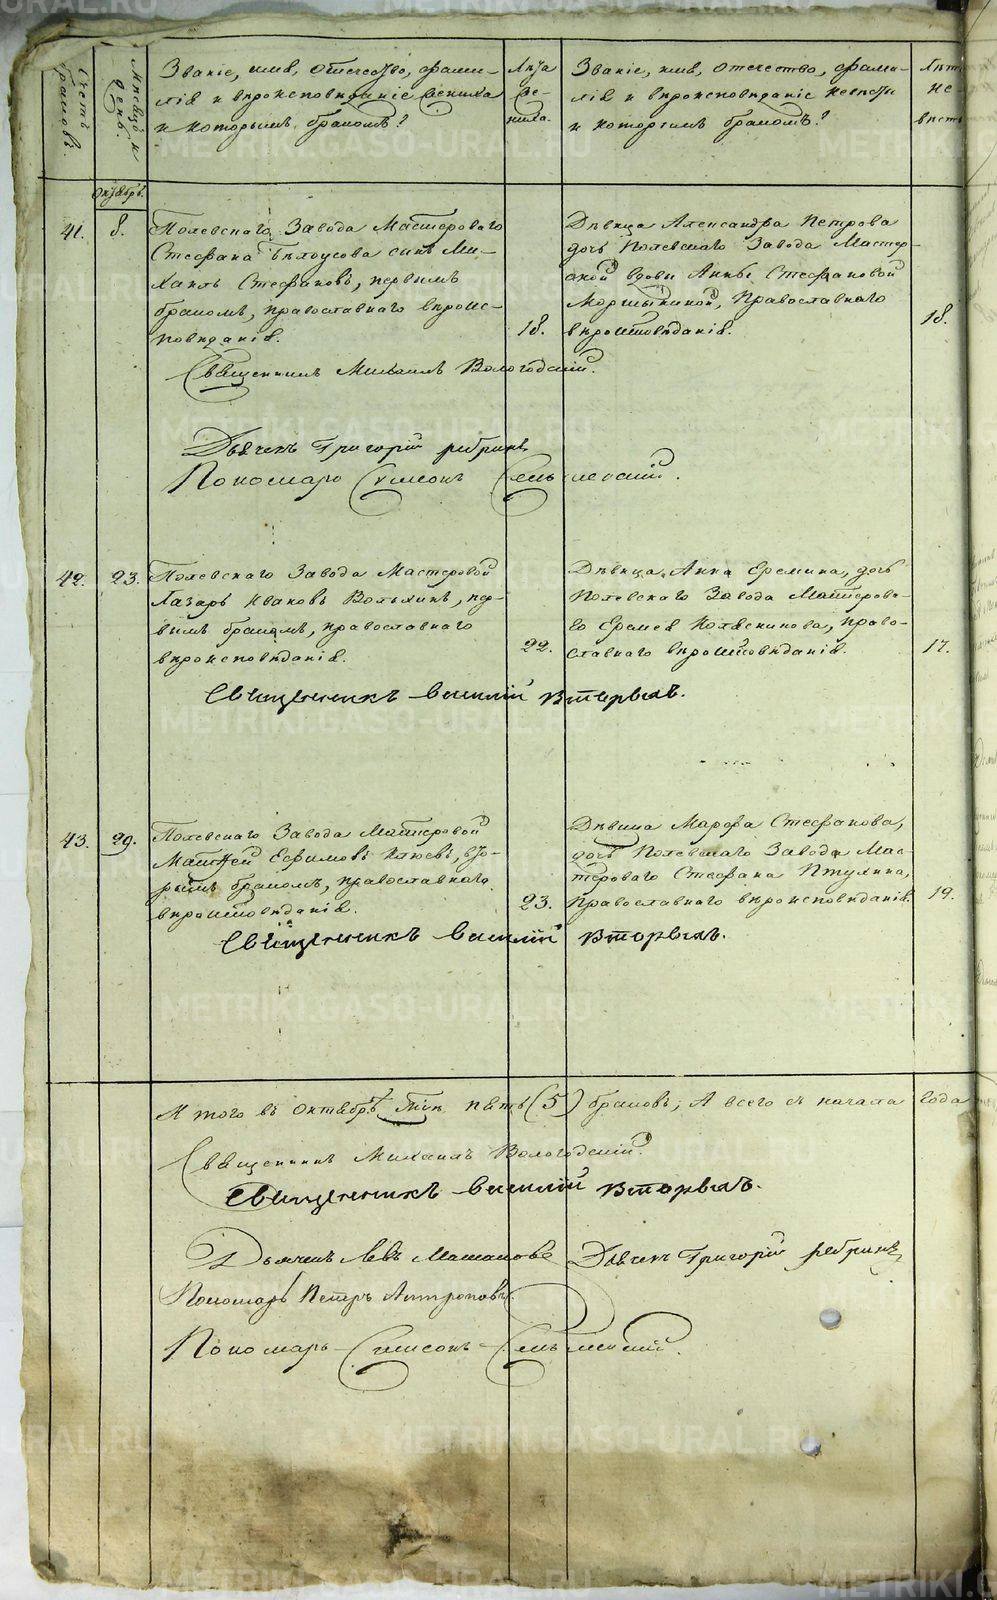 Счетъ браковъ.
Месяцъ и день.
Званіе, имя, отечество, фами-
лія и вѣроисповѣданіе жениха
и которымъ бракомъ?
Лѣта
же-
ниха.
Званіе, имя, отечество, фами-
лія и вѣроисповѣданіе невѣсты
и которымъ бракомъ?
Лѣт
не-
вѣст
Октябрь.
41. 8.
Полевскаго Завода Мастероваго
Стефана Бѣлоусова сынъ Ми-
хаилъ Стефановъ, первымъ
бракомъ, православнаго вѣроис-
повѣданія.
18.
Дѣвица Александра Петрова
дочь Полевскаго Завода Мастер-
ской вдовы Анны Стефановой
православнаго
вѣроисповѣданія.
18.
Священникъ Михаилъ Вологодскій.
Дьячекъ Григорій Ребринъ
Пономарь Симеонъ
42. 23.
Полевскаго Завода Мастеровой
Лазарь Ивановъ Волыхинъ, пер-
вымъ бракомъ, православнаго
вѣроисповѣданія.
22.
Дѣвица Анна Еремина, дочь
Полевскаго Завода Мастерова-
го Еремея право-
славнаго вѣроисповѣданія.
17.
Священникъ Василій Вторыхъ.
43. 29.
Полевскаго Завода Мастеровой
Матѳей Ефимовъ Клюевъ, вто-
рымъ бракомъ, православнаго
вѣроисповѣданія.
23.
Дѣвица Марфа Стефанова,
дочь Полевскаго Завода Мас-
тероваго Стефана Птухина,
православнаго вѣроисповѣданія.
19.
Священникъ Василій Вторыхъ.
Итого въ октябрѣ пять (5) браковъ, А всего съ начала года
Священникъ Михаилъ Вологодскій.
Священникъ Василій Вторыхъ.
Дьячекъ Левъ
Дьячекъ Григорій Ребринъ
Пономарь Петръ Антроповъ
Пономарь Симеонъ
METRIKI.GASO-URAL.RU